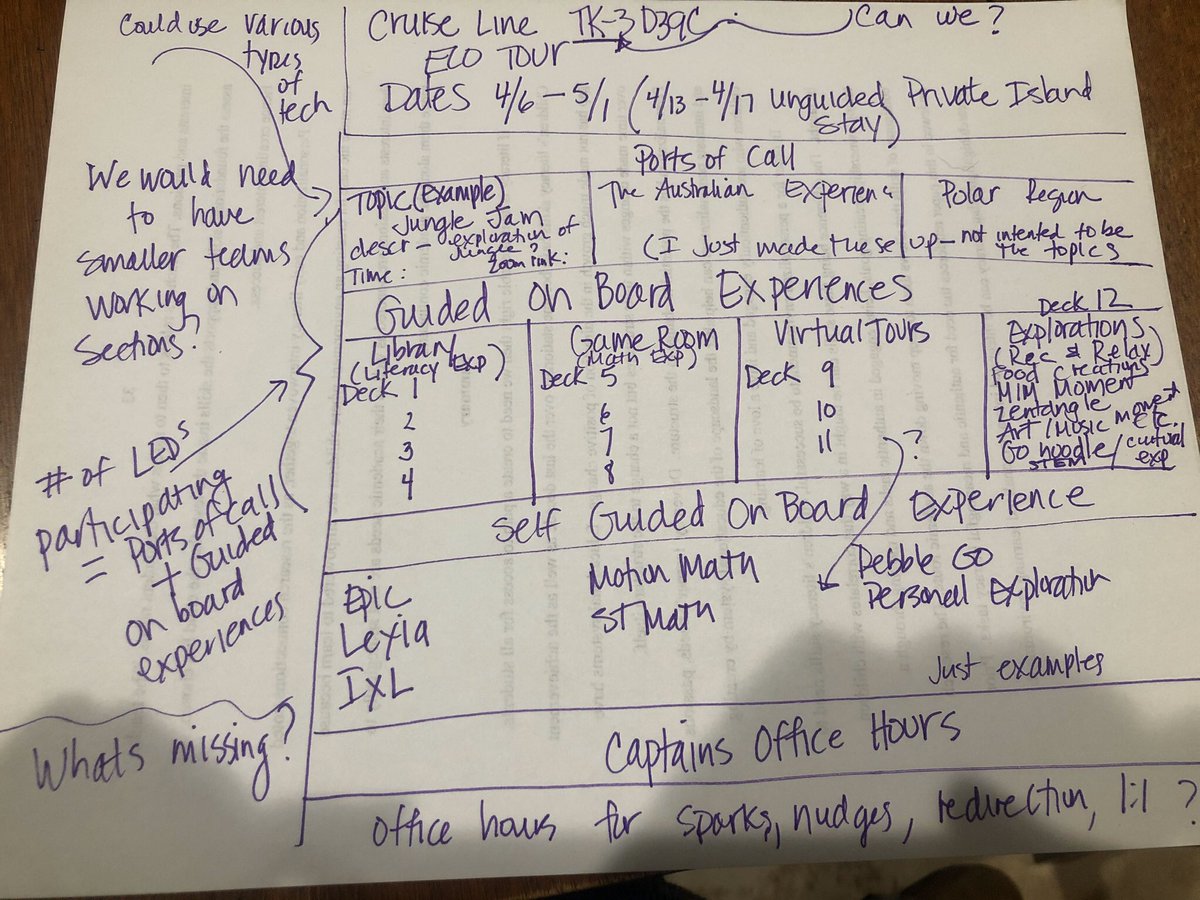 Could use various
types
of
tech
We would need
to have
smaller teams
working on
sections?
# of LEDs
participating
= Ports of Call
+ Guided
on board
experiences
Whats missing?
Cruise Line TK-3 D39C Can we?
ELO TOUR
Dates 4/6 - 5/1 (4/13 - 4/17 unguided Private Island
stay)
Ports of Call
Topic (Example)
Jungle Jam
descr - exploration of
Jungle?
Time: Zoom link:
The Australian Experienc
Polar Region
(I just made these up - not intended to be
the topics
Guided on Board Experiences
Library
(Literacy Exp)
Deck 1
2
3
4
Game Room
(Math Exp)
Deck 5
6
7
8
Virtual Tours
Deck 9
10
11
?
Deck 12
Explorations
(Rec & Relax)
Food Creations
MIM Moment
Zentangle
Art/Music moment
etc.
Go Noodle/cultual
STEM exp
Self Guided On Board Experience
Epic
Lexia
IXL
Motion Math
ST Math
Pebble Go
Personal Exploration
Just examples
Captains Office Hours
office hours for sparks, nudges, redirection, 1:1 ?